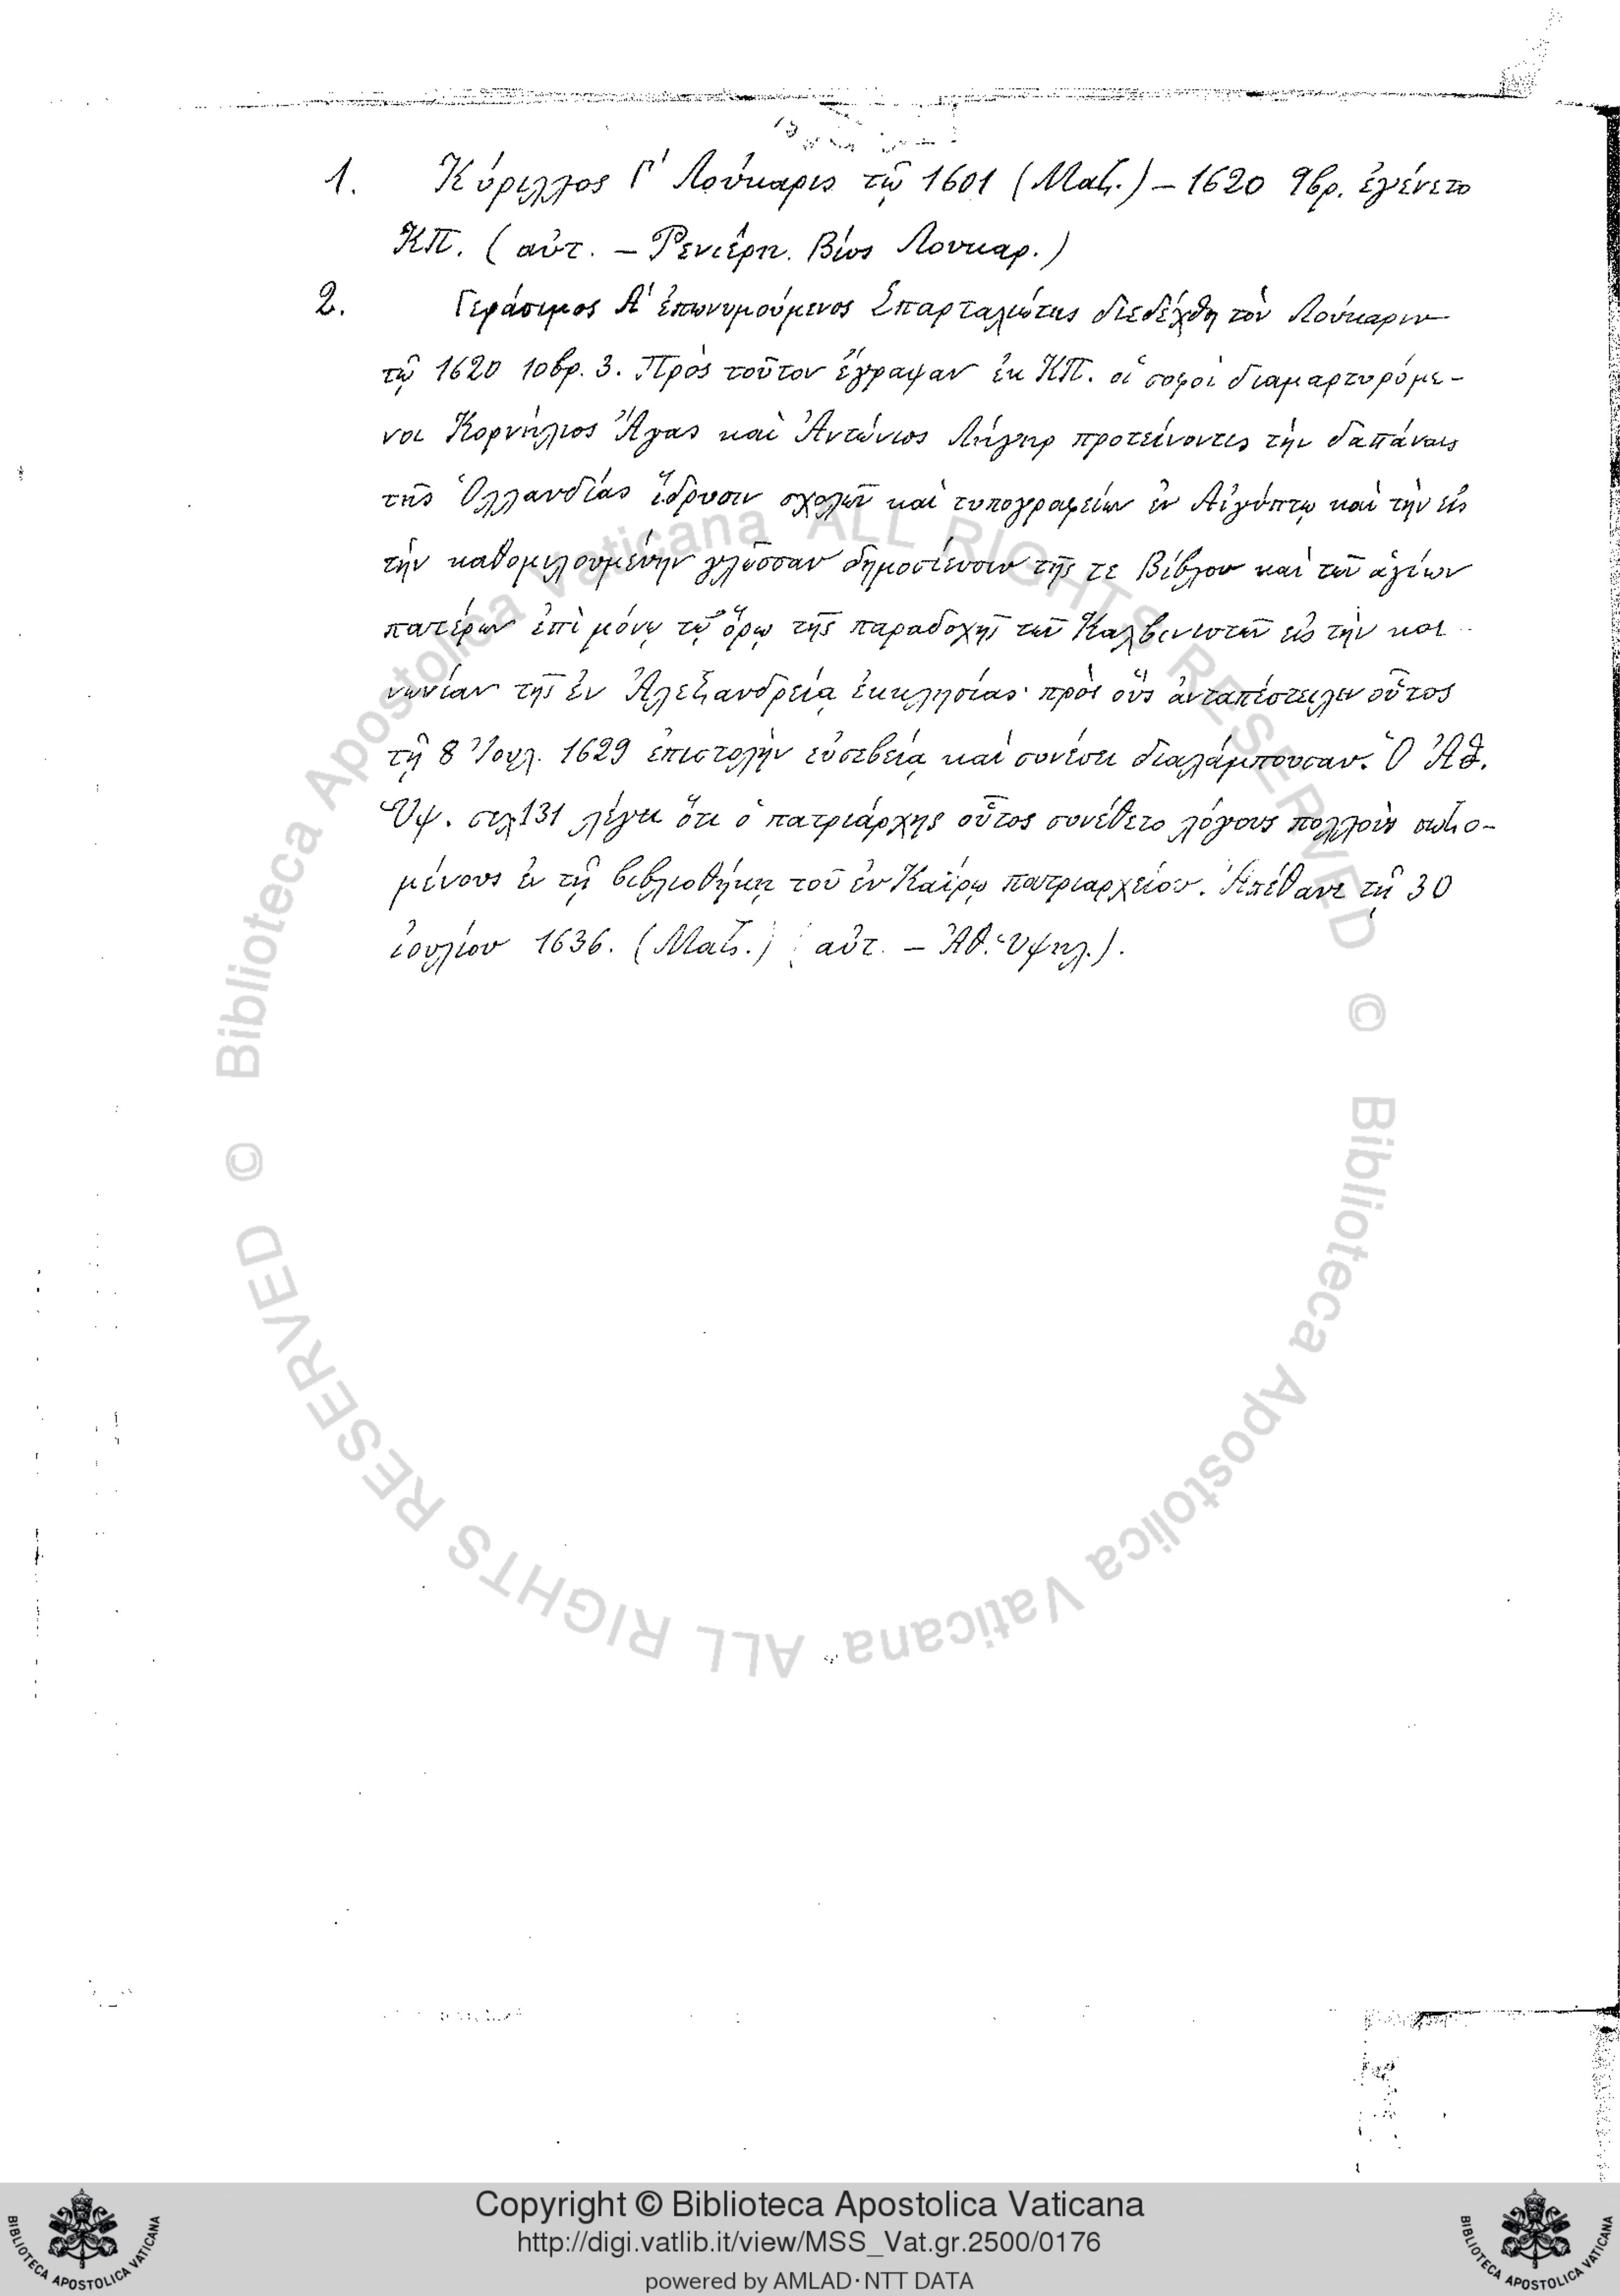 1. Κύριλλος Γ' Λούκαρις τῷ 1601 (Ματζ.) – 1620 9βρ. ἐγένετο
ΚΠ. (αὐτ. – Ρενιέρη. Βίος Λουκαρ.)
2. Γεράσιμος Α' ἐπωνυμούμενος Σπαρταλιώτης διεδέχθη τὸν Λούκαριν
τῷ 1620 10βρ. 3. Πρὸς τοῦτον ἔγραψαν ἐκ ΚΠ. οἱ σοφοὶ διαμαρτυρόμε-
νοι Κορνήλιος Ἄγας καὶ Ἀντώνιος Λήγηρ προτείνοντες τὴν δαπάναις
τῆς Ὁλλανδίας ἵδρυσιν σχολῶν καὶ τυπογραφείων ἐν Αἰγύπτῳ καὶ τὴν εἰς
τὴν καθομιλουμένην γλῶσσαν δημοσίευσιν τῆς τε Βίβλου καὶ τῶν ἁγίων
πατέρων ἐπὶ μόνῳ τῷ ὅρῳ τῆς παραδοχῆς τῶν Καλβινιστῶν εἰς τὴν κοι-
νωνίαν τῆς ἐν Ἀλεξανδρείᾳ ἐκκλησίας· πρὸς οὓς ἀνταπέστειλεν οὗτος
τῇ 8 Ἰουλ. 1629 ἐπιστολὴν εὐσεβείᾳ καὶ συνέσει διαλάμπουσαν. Ὁ Ἀθ.
Ὑψ. σελ 131 λέγει ὅτι ὁ πατριάρχης οὗτος συνέθετο λόγους πολλοὺς σωζο-
μένους ἐν τῇ βιβλιοθήκῃ τοῦ ἐν Καΐρῳ πατριαρχείου. Ἀπέθανε τῇ 30
ἰουλίου 1636. (Ματζ.) (αὐτ. – Ἀθ. Ὑψηλ.).
© Biblioteca Apostolica Vaticana ALL RIGHTS RESERVED
© Biblioteca Apostolica Vaticana ALL RIGHTS RESERVED
Copyright © Biblioteca Apostolica Vaticana
http://digi.vatlib.it/view/MSS_Vat.gr.2500/0176
powered by AMLAD·NTT DATA
BIBLIOTECA APOSTOLICA VATICANA
BIBLIOTECA APOSTOLICA VATICANA